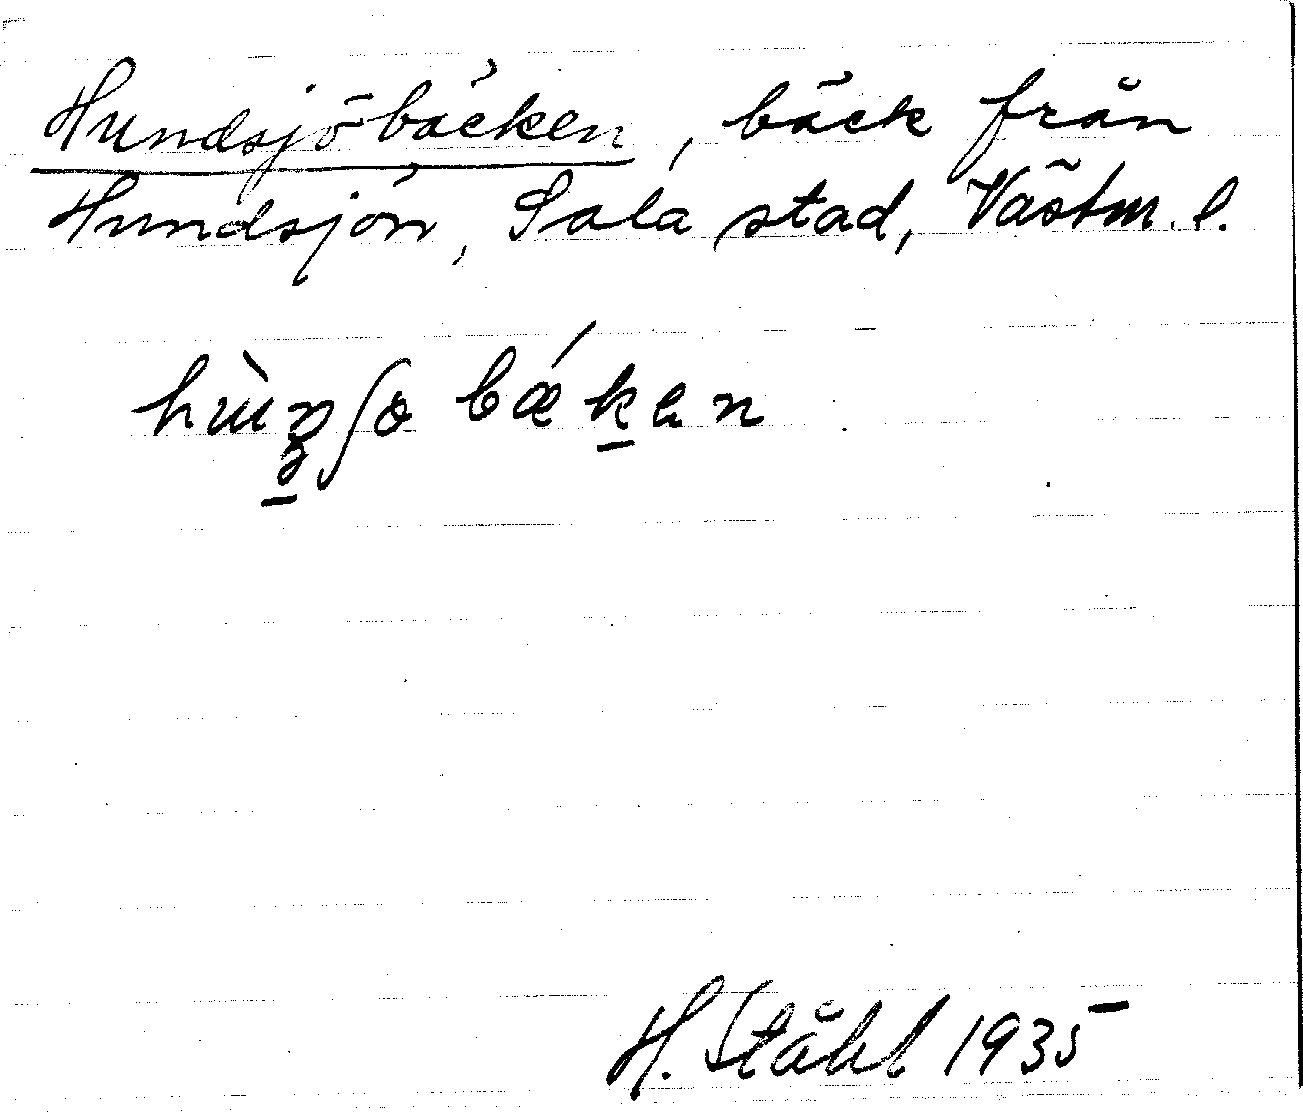 Hundsjöbäcken, bäck från
Hundsjön, Sala stad, Västm. l.
H. Ståhl 1935